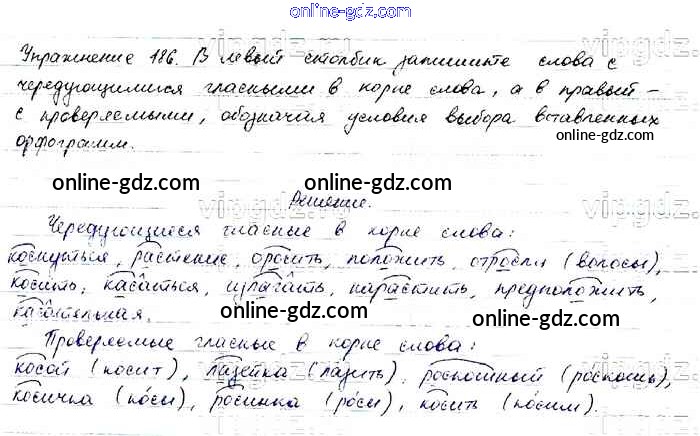 online-gdz.com
Упражнение 186. В левый столбик запишите слова с
чередующимися гласными в корне слова, а в правый –
с проверяемыми, обозначая условия выбора вставленных
орфограмм.
online-gdz.com
online-gdz.com
online-gdz.com
Решение.
Чередующиеся гласные в корне слова:
коснуться, растение, оросить, положить, отросли (волосы),
косить, касаться, излагать, нарастить, предположить,
касательная.
online-gdz.com
online-gdz.com
Проверяемые гласные в корне слова:
косой (косит), лазейка (лазить), роскошный (ро́скошь),
косичка (ко́сы), росинка (ро́сы), косить (ко́сим).
online-gdz.com
online-gdz.com